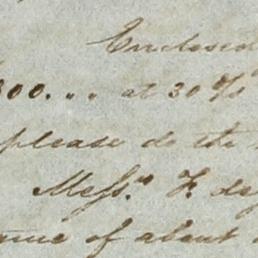 Enclosed
300. . . at 30 d/s
please do the
Messrs. F. de
of about